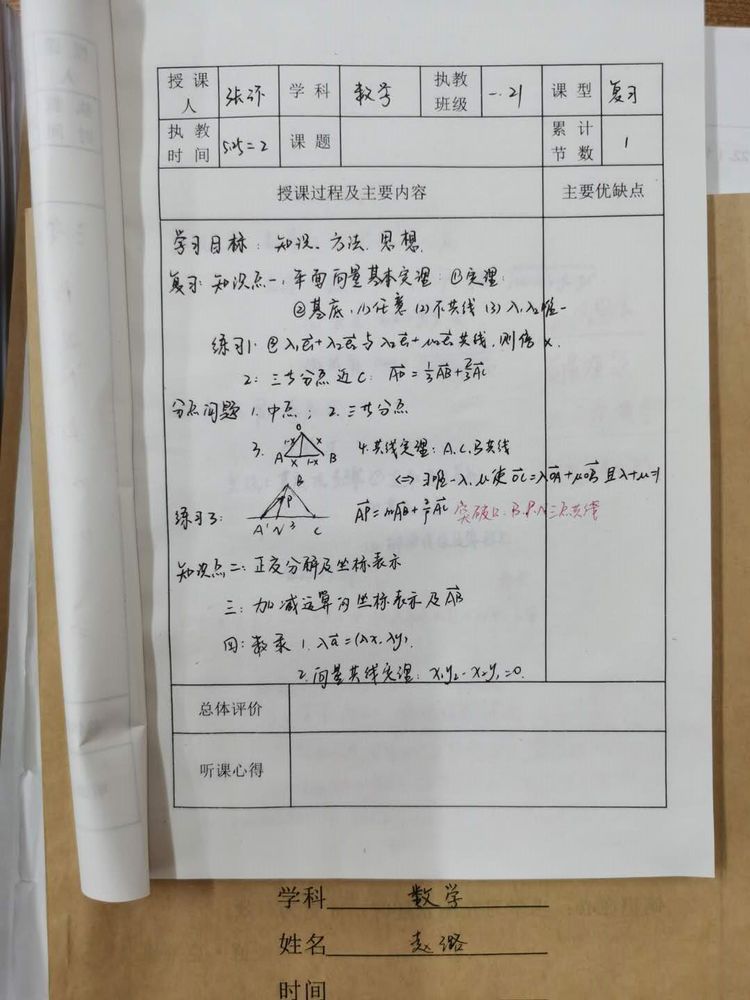 授课人 张 学科 数学 执教班级 一.21 课型 复习
执教时间 5.25 = 2 课题 累计节数 1
授课过程及主要内容 主要优缺点
学习目标：知识、方法、思想.
复习：知识点一，平面向量基本定理：①定理：
②基底，(1)任意 (2)不共线 (3) λ₁λ₂唯一
练习1：② λ₁e₁+λ₂e₂与 共线，则 x.
2：三等分点近C：AD = 1/3AB + 2/3AC
分点问题 1. 中点； 2. 三等分点
3. O 1-x x A x 1-x B 4. 共线定理：A、C、B共线
⇔ ∃唯一λ、μ使OC=λOA+μOB 且λ+μ=1
练习3： B P A 1 N 3 C AP = mAB + AC 突破口：B、P、N三点共线
知识点二：正交分解及坐标表示
三：加减运算的坐标表示及AB
四：数乘 1. λa = (λx, λy).
2. 向量共线定理：x₁y₂-x₂y₁=0.
总体评价
听课心得
学科 数学
姓名 赵璐
时间